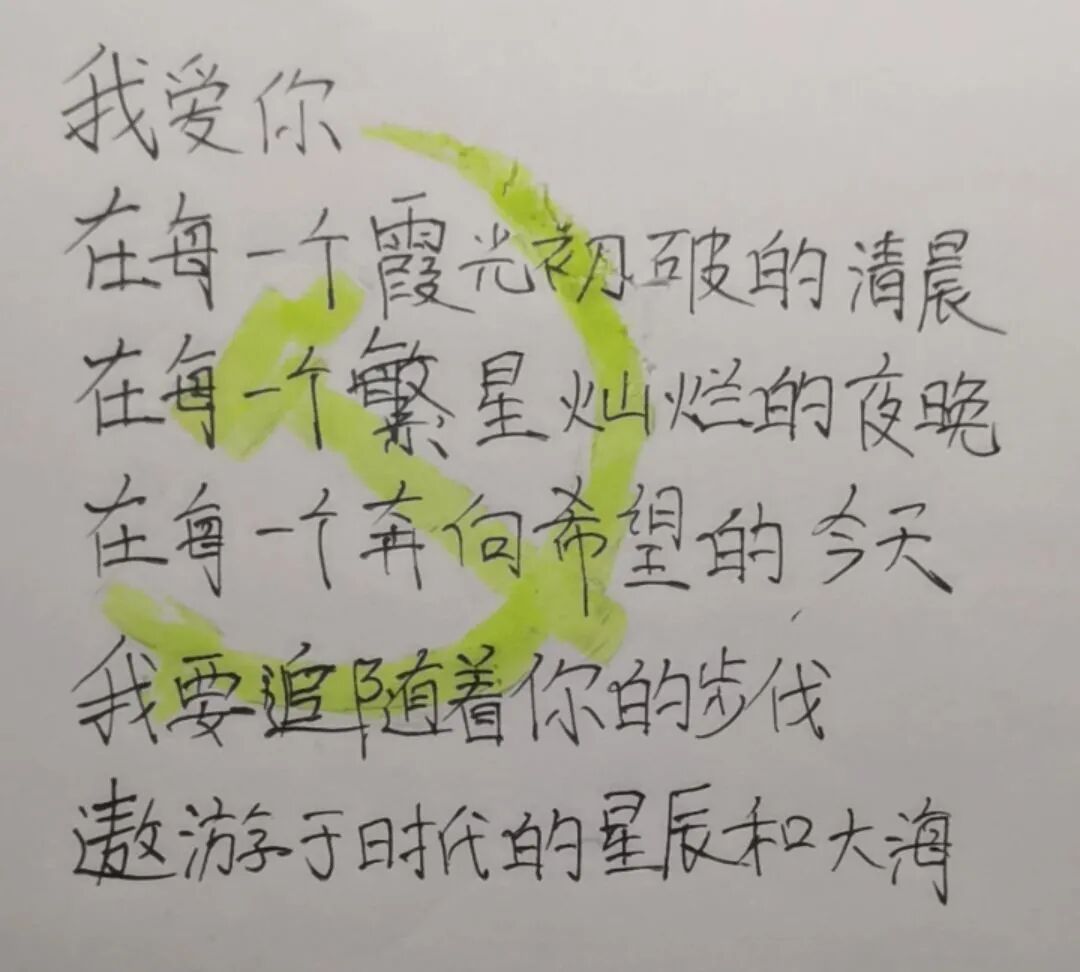 我爱你
在每一个霞光初破的清晨
在每一个繁星灿烂的夜晚
在每一个奔向希望的今天
我要追随着你的步伐
遨游于时代的星辰和大海